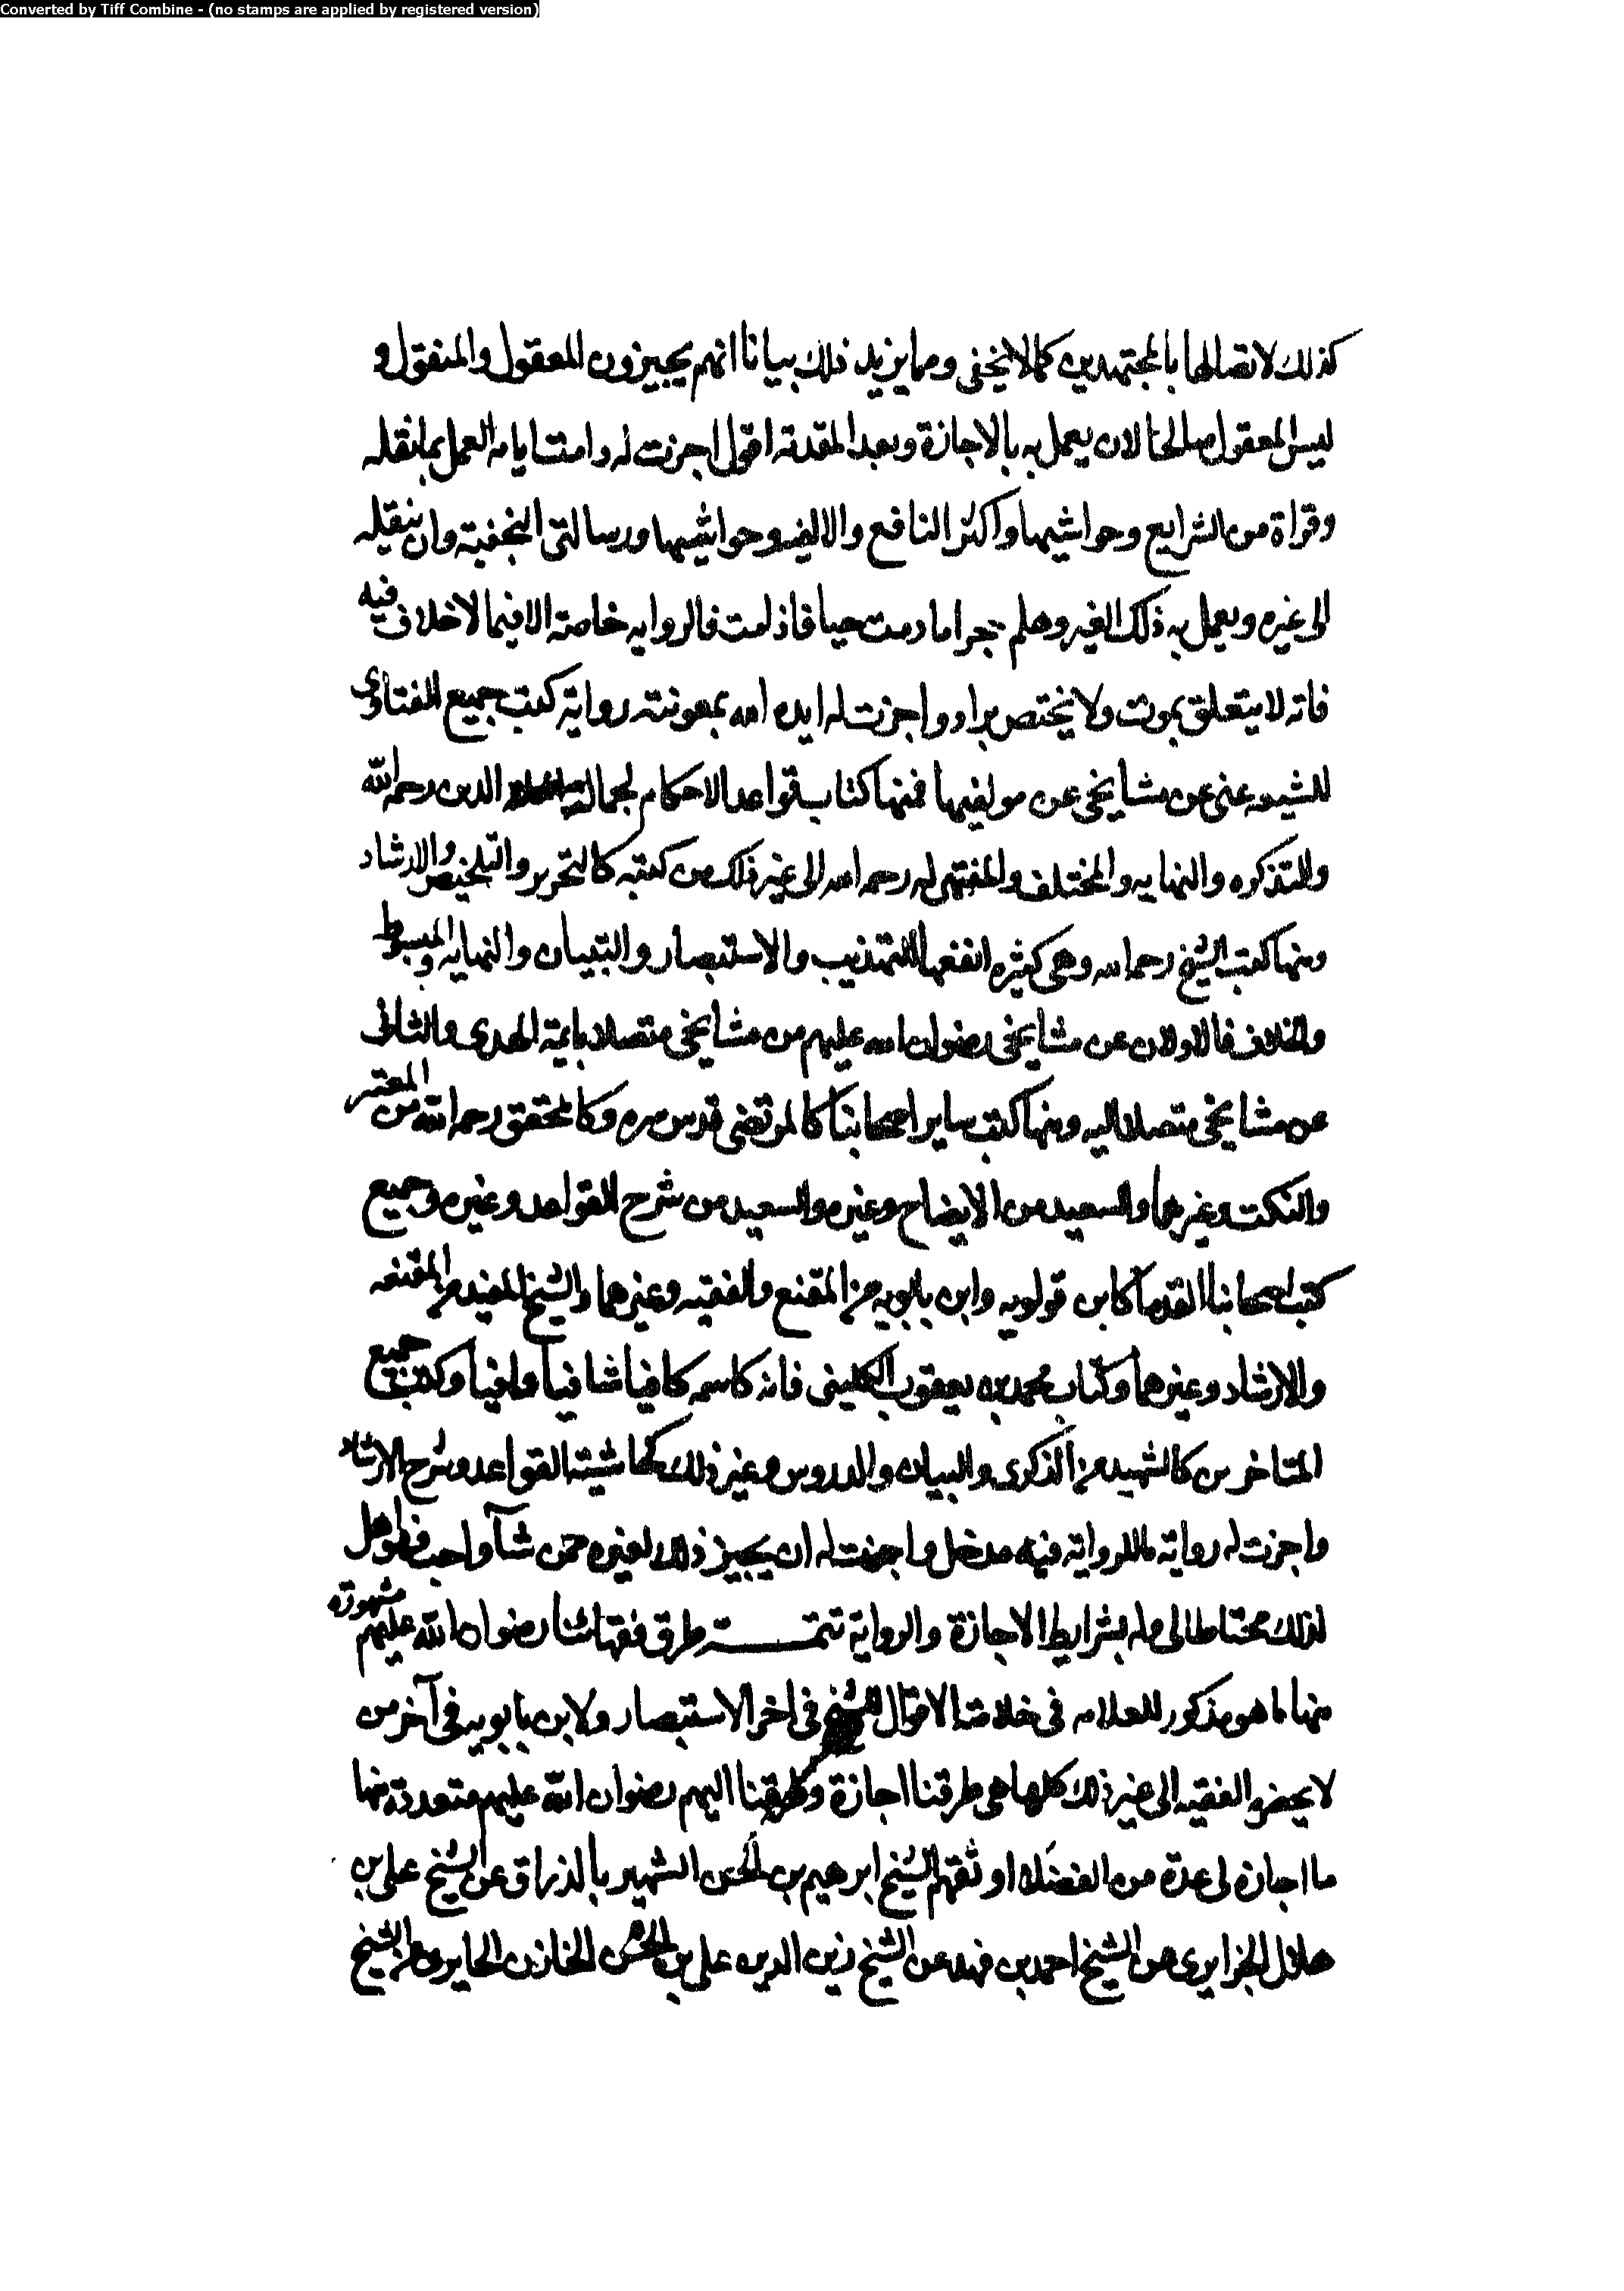 Converted by Tiff Combine - (no stamps are applied by registered version)
كذلك لاتصالها بالمجتهدين كما لا يخفى ومما يزيد ذلك بيانا انهم يجيزون المعقول والمنقول و
ليس المعقول صالحا لان يعمل به بالاجازة وبعد المقدمة اقول اجزت له دامت ايامه العمل بما نقله
وقراة من الشرايع وحواشيها واكثر النافع والالفيه وحواشيها ورسالتي النجفية وان ينقله
الى غيره ويعمل به ذلك الغير وهلم جرا ما دمت حيا فاذا مت فالروايه خاصة الا فيما لا خلاف فيه
فانه لا يتعلق بموت ولا يختص براو واجزت له ايده الله بمعونته رواية كتب جميع الفتاوى
للشيعه عني عن مشايخي عن مولفيها فمنها كتاب قواعد الاحكام لجمال الدين رحمه الله
والتذكره والنهايه والمختلف والمنتهى له رحمه الله الى غير ذلك من كتبه كالتحرير والتلخيص والارشاد
ومنها كتب الشيخ رحمه الله وهي كثيره انفعها التهذيب والاستبصار والتبيان والنهايه والمبسوط
والخلاف فالاولان عن مشايخي رضوان الله عليهم من مشايخي متصلا بايمة الهدى والثاني
عن مشايخي متصلا اليه ومنها كتب ساير اصحابنا كالمرتضى قدس سره وكالمحقق رحمه الله من المعتبر
والنكت وغيرهما والسعيد من الايضاح وغيره والسعيد من شرح القواعد وغيره وجميع
كتب اصحابنا القدمآ كابن قولويه وابن بابويه من المقنع والفقيه وغيرهما والشيخ المفيد من المقنعه
والارشاد وغيرهما وكتاب محمد بن يعقوب الكليني فانه كاسمه كافيا شافيا وافيا وكتب جميع
المتاخرين كالشهيد من الذكرى والبيان والدروس وغير ذلك كحاشية القواعد وشرح الارشاد
واجزت له رواية ما للرواية فيه مدخل واجزت له ان يجيز ذلك لغيره ممن شآ واحب فهو اهل
لذلك محتاطا لي وله بشرايط الاجازة والرواية تتمـــة طرق فقهائنا رضوان الله عليهم مشهورة
منها ما هو مذكور للعلامه في خلاصة الاقوال للشيخ في اخر الاستبصار ولابن بابويه في آخر من
لا يحضره الفقيه الى غير ذلك كلها هي طرقنا اجازة وطرقنا اليهم رضوان الله عليهم متعددة منها
ما اجازه لي عدة من الفضلاء اوثقهم الشيخ ابرهيم بن الحسن الشهير بالذراق عن الشيخ علي بن
هلال الجزايري عن الشيخ احمد بن فهد عن الشيخ زين الدين علي بن الحسن الخازن الحايري عن الشيخ